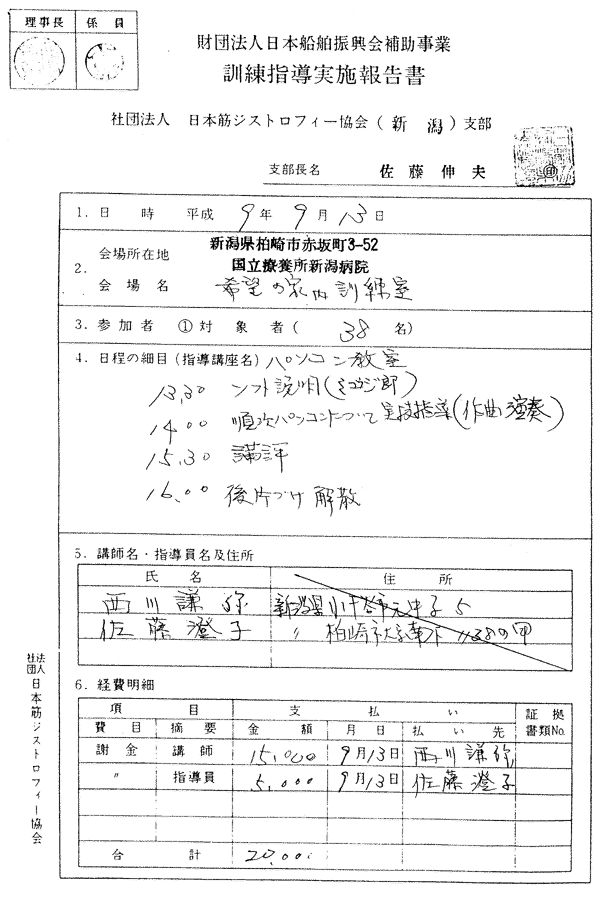 理事長 係員
財団法人日本船舶振興会補助事業
訓練指導実施報告書
社団法人 日本筋ジストロフィー協会(新潟)支部
支部長名 佐藤伸夫
1. 日 時 平成 9年 9月 13日
新潟県柏崎市赤坂町3-52
2. 会場所在地
国立療養所新潟病院
会場名 希望の家内訓練室
3. 参加者 ①対象者( 38名)
4. 日程の細目(指導講座名)パソコン教室
13,30 ソフト説明(ミュウジ郎)
14.00 順次パソコンについて実技指導(作曲演奏)
15,30 講評
16,00 後片づけ 解散
5. 講師名・指導員名及住所
氏名 住所
西川謙弥 新潟県小千谷市元中子5
佐藤澄子 〃 柏崎市大字
6. 経費明細
項目 支払い 証拠書類No.
費目 摘要 金額 月日 払い先
謝金 講師 15,000 9月13日 西川謙弥
〃 指導員 5,000 9月13日 佐藤澄子
合計 20,000
社団法人 日本筋ジストロフィー協会